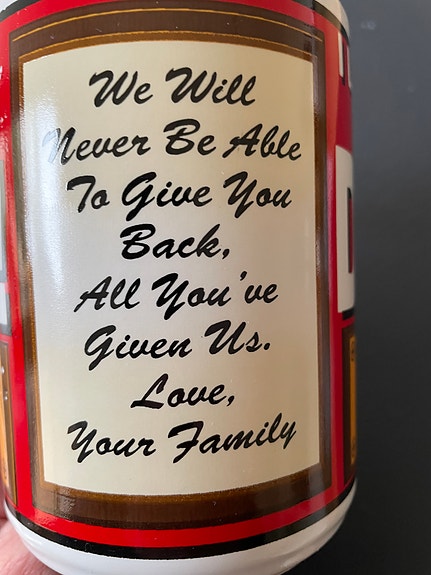 We Will
Never Be Able
To Give You
Back,
All You've
Given Us.
Love,
Your Family